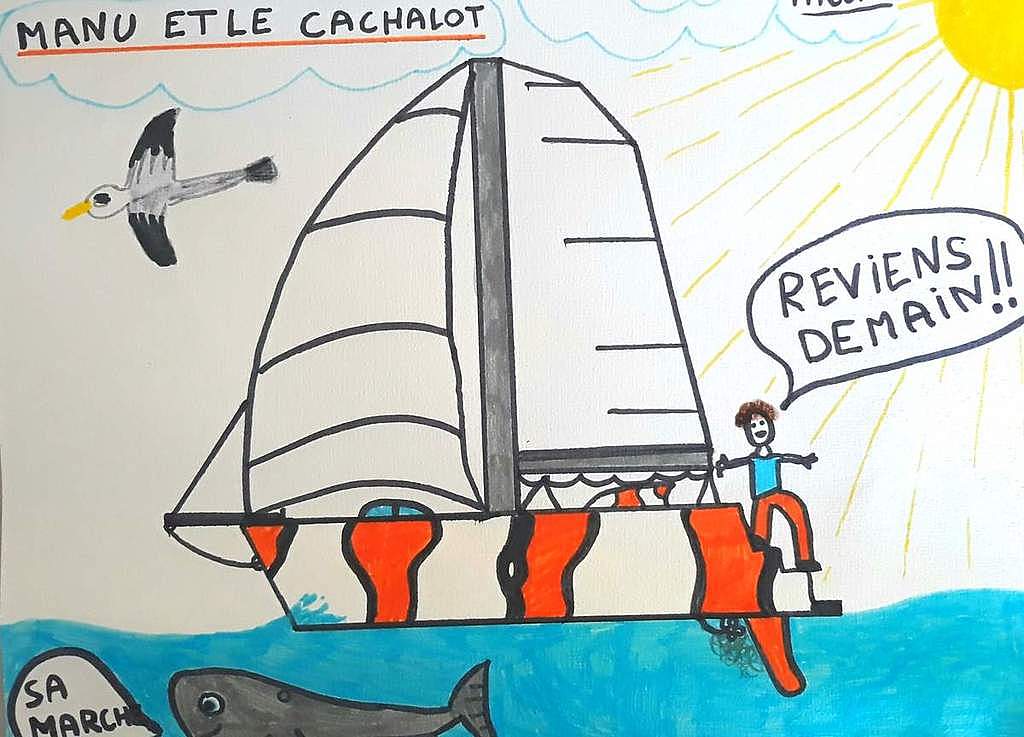 MANU ET LE CACHALOT
REVIENS
DEMAIN!!
SA
MARCHE